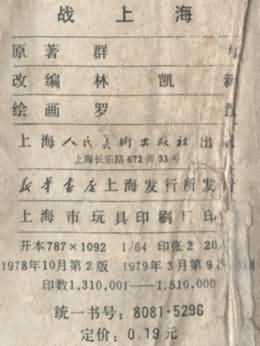 战上海
原著 群
改编 林凯
绘画 罗
上海人民美术出版社出
上海长乐路672弄33号
新华书店上海发行所发
上海市玩具印刷厂印
开本787×1092 1/64 印张2 20
1978年10月第2版 1979年3月第9
印数1,310,001—1,510,000
统一书号：8081·5296
定价：0.19元